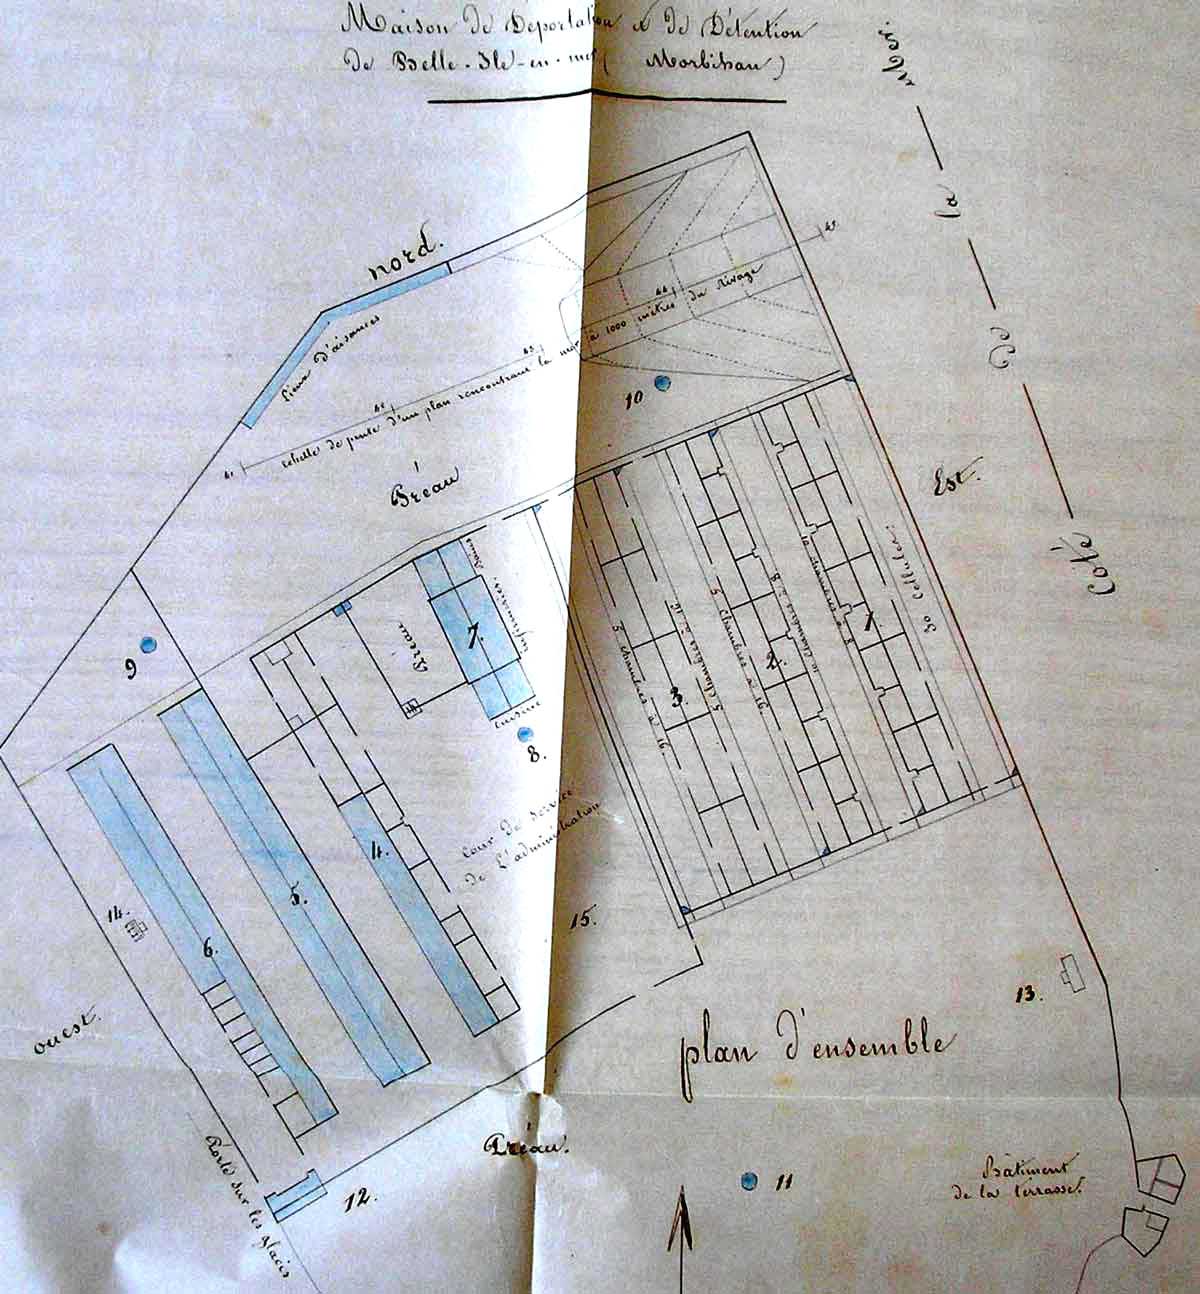 Maison de Déportation et de Détention
de Belle-Ile-en-mer ( Morbihan )
Côté de la Mer
nord.
Lieux d'aisances
41
42
43
44
45
échelle de pente d'un plan rencontrant la mer à 1000 mètres du rivage
Préau
10
Est.
9
Préau
7.
infirmeries. bains
cuisine
8.
cour de service
de L'administration
3.
5 chambres à 16
2.
10 chambres à 8
1
30 Cellules
4.
5.
6.
14.
15.
13.
ouest.
plan d'ensemble
Préau.
11
12.
Porte sur les glacis
Bâtiment
de la terrasse.